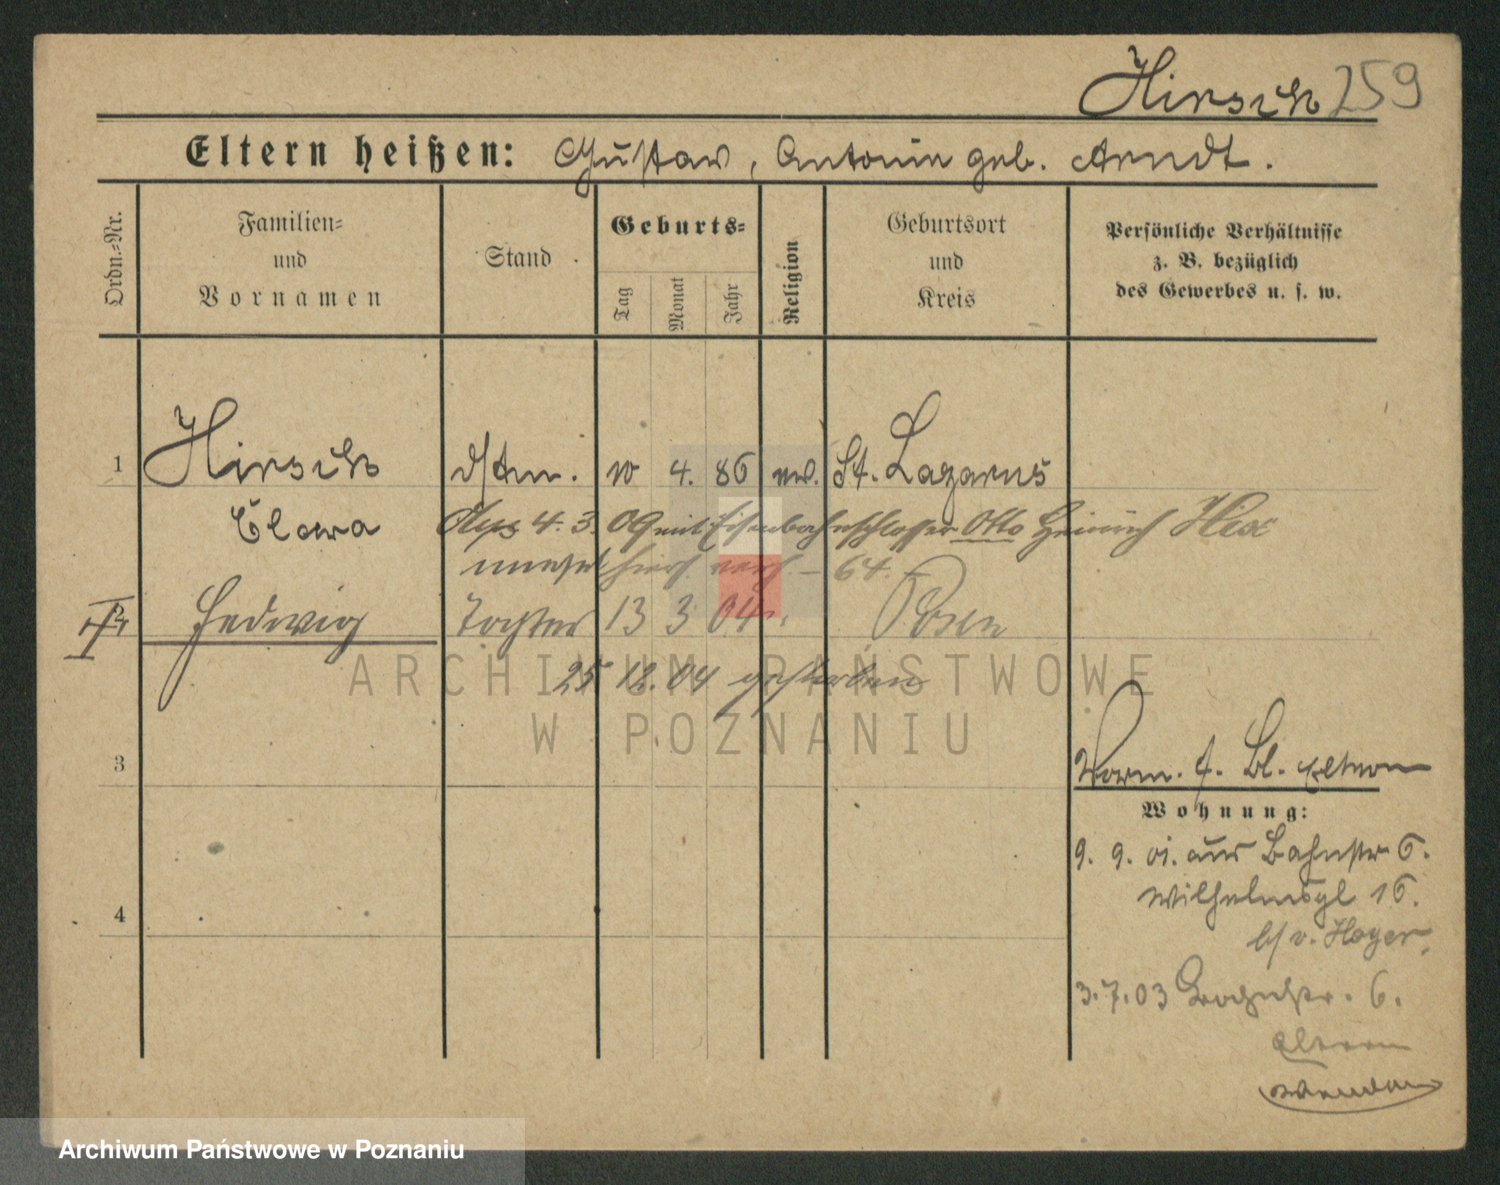 Hirsch 259
Eltern heißen: Gustav, Antonie geb. Arndt.
Ordn.-Nr.
Familien- und Vornamen
Stand
Geburts-
Tag
Monat
Jahr
Religion
Geburtsort und Kreis
Persönliche Verhältnisse z. B. bezüglich des Gewerbes u. s. w.
1 Hirsch 4. 86 ev. St. Lazarus
Clara
4. 3. 09 mit Eisenbahnschlosser Otto Heinrich
64.
Hedwig Tochter 13 3 04 Posen
25 12. 04 gestorben
3
Vorm. f. Bl. Eltern
Wohnung:
9. 9. 01. aus Bahnstr 6.
Wilhelmspl 16.
b/ v. Hoyer
4
3.7.03 Bahnstr. 6.
Eltern
ARCHIWUM PAŃSTWOWE
W POZNANIU
Archiwum Państwowe w Poznaniu